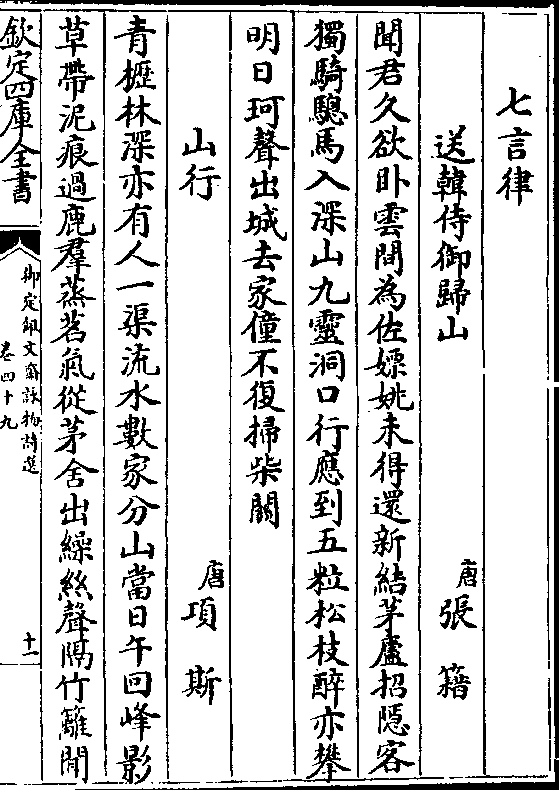 七言律
送韓侍御歸山
唐張籍
聞君久欲卧雲間為佐嫖姚未得還新結茅廬招隠客
獨騎驄馬入深山九靈洞口行應到五粒松枝醉亦攀
明日珂聲出城去家僮不復掃柴闗
山行
唐項斯
青櫪林深亦有人一渠流水數家分山當日午回峰影
草帶泥痕過鹿羣蒸茗氣從茅舍出繰絲聲隔竹籬聞
欽定四庫全書
御定佩文齋詠物詩選
卷四十九
十一